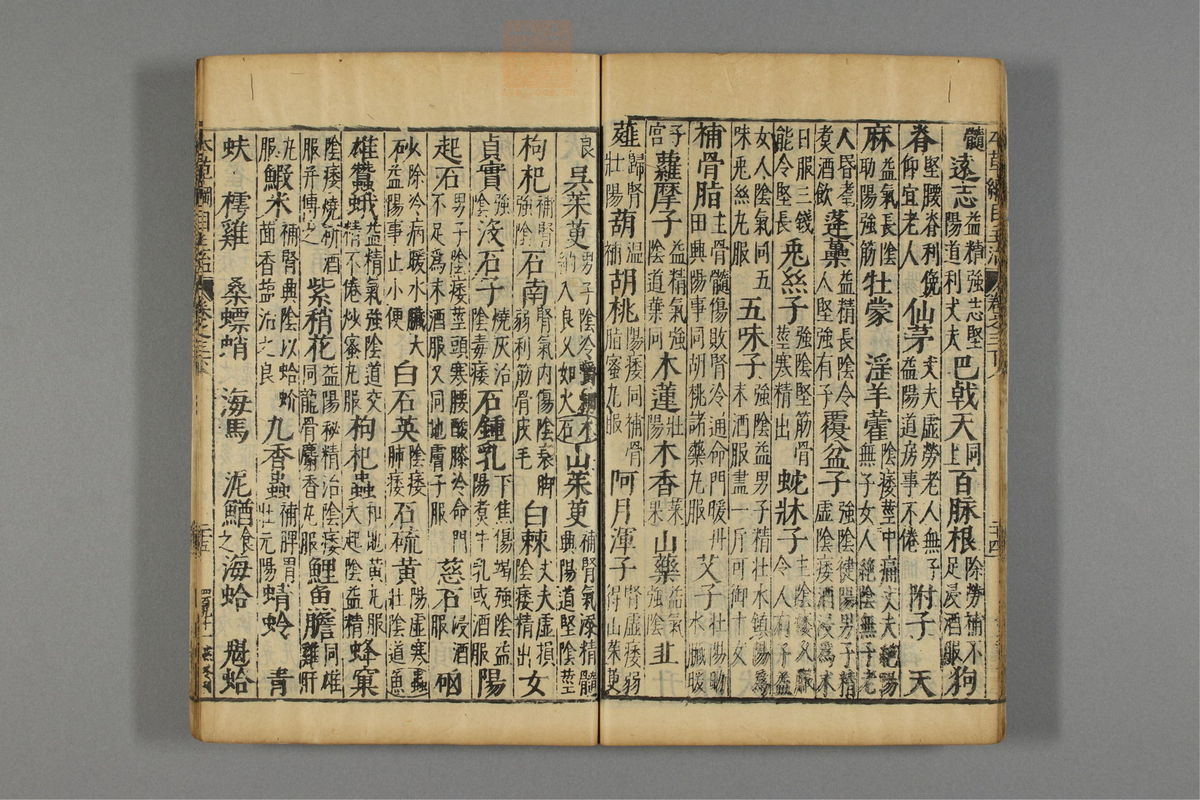 髓 遠志益精強志堅陽道利丈夫 巴戟天同上 百脉根除勞補不足浸酒服 狗
脊堅腰脊利俛仰宜老人 仙茅丈夫虛勞老人無子益陽道房事不倦 附子 天
麻益氣長陰助陽強筋 牡蒙 淫羊藿陰痿莖中痛丈夫絶陽無子女人絶陰無子老
人昏耄煮酒飲 蓬蘽益精長陰令人堅強有子 覆盆子強陰健陽男子精虛陰痿酒浸爲末
日服三錢能令堅長 兎絲子強陰堅筋骨莖寒精出 蛇牀子主陰痿久服令人有子益
女人陰氣同五味兎絲丸服 五味子強陰益男子精壯水鎮陽爲末酒服盡一斤可御十女
補骨脂主骨髓傷敗腎冷通命門暖丹田興陽事同胡桃諸藥丸服 艾子壯陽助水臟暖
子宮 蘿摩子益精氣強陰道葉同 木蓮壯陽 木香 菜果 山藥益氣強陰 韭
薤歸腎壯陽 葫溫補 胡桃陽痿同補骨脂蜜丸服 阿月渾子腎虛痿弱得山茱萸
良 吳茱萸男子陰冷嚼細納入良久如火 木石 山茱萸補腎氣添精髓興陽道堅陰莖
枸杞補腎強陰 石南腎氣內傷陰衰脚弱利筋骨皮毛 白棘丈夫虛損陰痿精出 女
貞實強陰 没石子燒灰治陰毒痿 石鍾乳下焦傷竭強陰益陽煮牛乳或酒服 陽
起石男子陰痿莖頭寒腰酸膝冷命門不足爲末酒服又同地膚子服 慈石浸酒服 硇
砂除冷病暖水臟大益陽事止小便 白石英陰痿肺痿 石硫黃陽虛寒壯陰道 蟲魚
雄蠶蛾益精氣強陰道交精不倦炒蜜丸服 枸杞蟲和地黃丸服大起陰益精 蜂窠
陰痿燒研酒服并傅之 紫稍花益陽秘精治陰痿同龍骨麝香丸服 鯉魚膽同雄雞肝
丸服 鰕米補腎興陰以蛤蚧茴香鹽治之良 九香蟲補脾胃壯元陽 蜻蛉 青
蚨 樗雞 桑螵蛸 海馬 泥鰌食之 海蛤 魁蛤